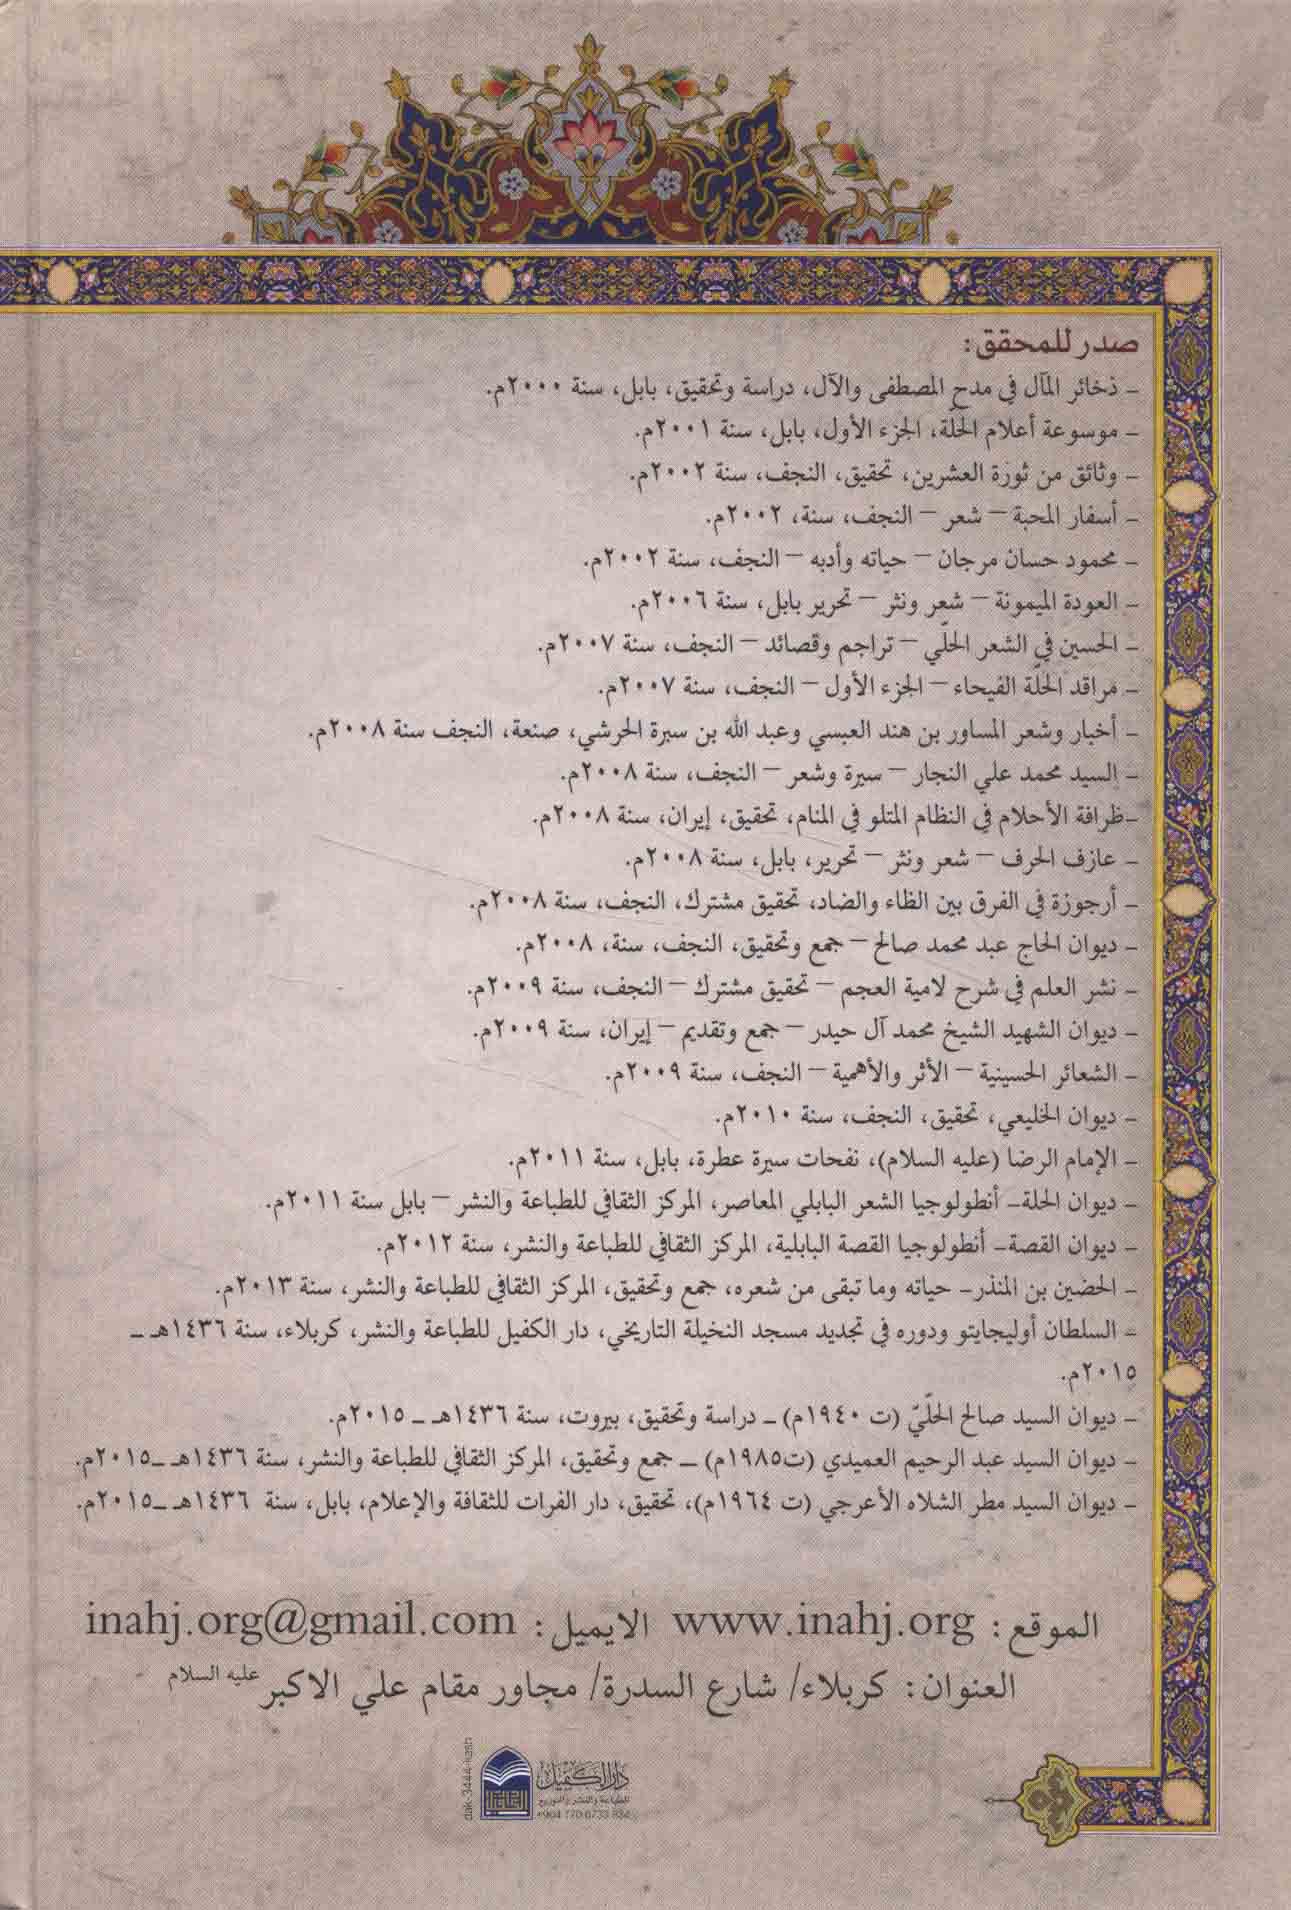 صدر للمحقق:
- ذخائر المآل في مدح المصطفى والآل، دراسة وتحقيق، بابل، سنة ٢٠٠٠م.
- موسوعة أعلام الحلّة، الجزء الأول، بابل، سنة ٢٠٠١م.
- وثائق من ثورة العشرين، تحقيق، النجف، سنة ٢٠٠٢م.
- أسفار المحبة – شعر – النجف، سنة، ٢٠٠٢م.
- محمود حسان مرجان – حياته وأدبه – النجف، سنة ٢٠٠٢م.
- العودة الميمونة – شعر ونثر – تحرير بابل، سنة ٢٠٠٦م.
- الحسين في الشعر الحلّي – تراجم وقصائد – النجف، سنة ٢٠٠٧م.
- مراقد الحلّة الفيحاء – الجزء الأول – النجف، سنة ٢٠٠٧م.
- أخبار وشعر المساور بن هند العبسي وعبد الله بن سبرة الحرشي، صنعة، النجف سنة ٢٠٠٨م.
- السيد محمد علي النجار – سيرة وشعر – النجف، سنة ٢٠٠٨م.
-ظرافة الأحلام في النظام المتلو في المنام، تحقيق، إيران، سنة ٢٠٠٨م.
- عازف الحرف – شعر ونثر – تحرير، بابل، سنة ٢٠٠٨م.
- أرجوزة في الفرق بين الظاء والضاد، تحقيق مشترك، النجف، سنة ٢٠٠٨م.
- ديوان الحاج عبد محمد صالح – جمع وتحقيق، النجف، سنة، ٢٠٠٨م.
- نشر العلم في شرح لامية العجم – تحقيق مشترك – النجف، سنة ٢٠٠٩م.
- ديوان الشهيد الشيخ محمد آل حيدر – جمع وتقديم – إيران، سنة ٢٠٠٩م.
- الشعائر الحسينية – الأثر والأهمية – النجف، سنة ٢٠٠٩م.
- ديوان الخليعي، تحقيق، النجف، سنة ٢٠١٠م.
- الإمام الرضا (عليه السلام)، نفحات سيرة عطرة، بابل، سنة ٢٠١١م.
- ديوان الحلة- أنطولوجيا الشعر البابلي المعاصر، المركز الثقافي للطباعة والنشر – بابل سنة ٢٠١١م.
- ديوان القصة- أنطولوجيا القصة البابلية، المركز الثقافي للطباعة والنشر، سنة ٢٠١٢م.
- الحضين بن المنذر- حياته وما تبقى من شعره، جمع وتحقيق، المركز الثقافي للطباعة والنشر، سنة ٢٠١٣م.
- السلطان أوليجايتو ودوره في تجديد مسجد النخيلة التاريخي، دار الكفيل للطباعة والنشر، كربلاء، سنة ١٤٣٦هـ -
٢٠١٥م.
- ديوان السيد صالح الحلّيّ (ت ١٩٤٠م) - دراسة وتحقيق، بيروت، سنة ١٤٣٦هـ - ٢٠١٥م.
- ديوان السيد عبد الرحيم العميدي (ت١٩٨٥م) - جمع وتحقيق، المركز الثقافي للطباعة والنشر، سنة ١٤٣٦هـ -٢٠١٥م.
- ديوان السيد مطر الشلاه الأعرجي (ت ١٩٦٤م)، تحقيق، دار الفرات للثقافة والإعلام، بابل، سنة ١٤٣٦هـ -٢٠١٥م.
الموقع: www.inahj.org الايميل: inahj.org@gmail.com
العنوان: كربلاء/ شارع السدرة/ مجاور مقام علي الاكبر عليه السلام
دار الكفيل
للطباعة والنشر والتوزيع
dak-3444-kash